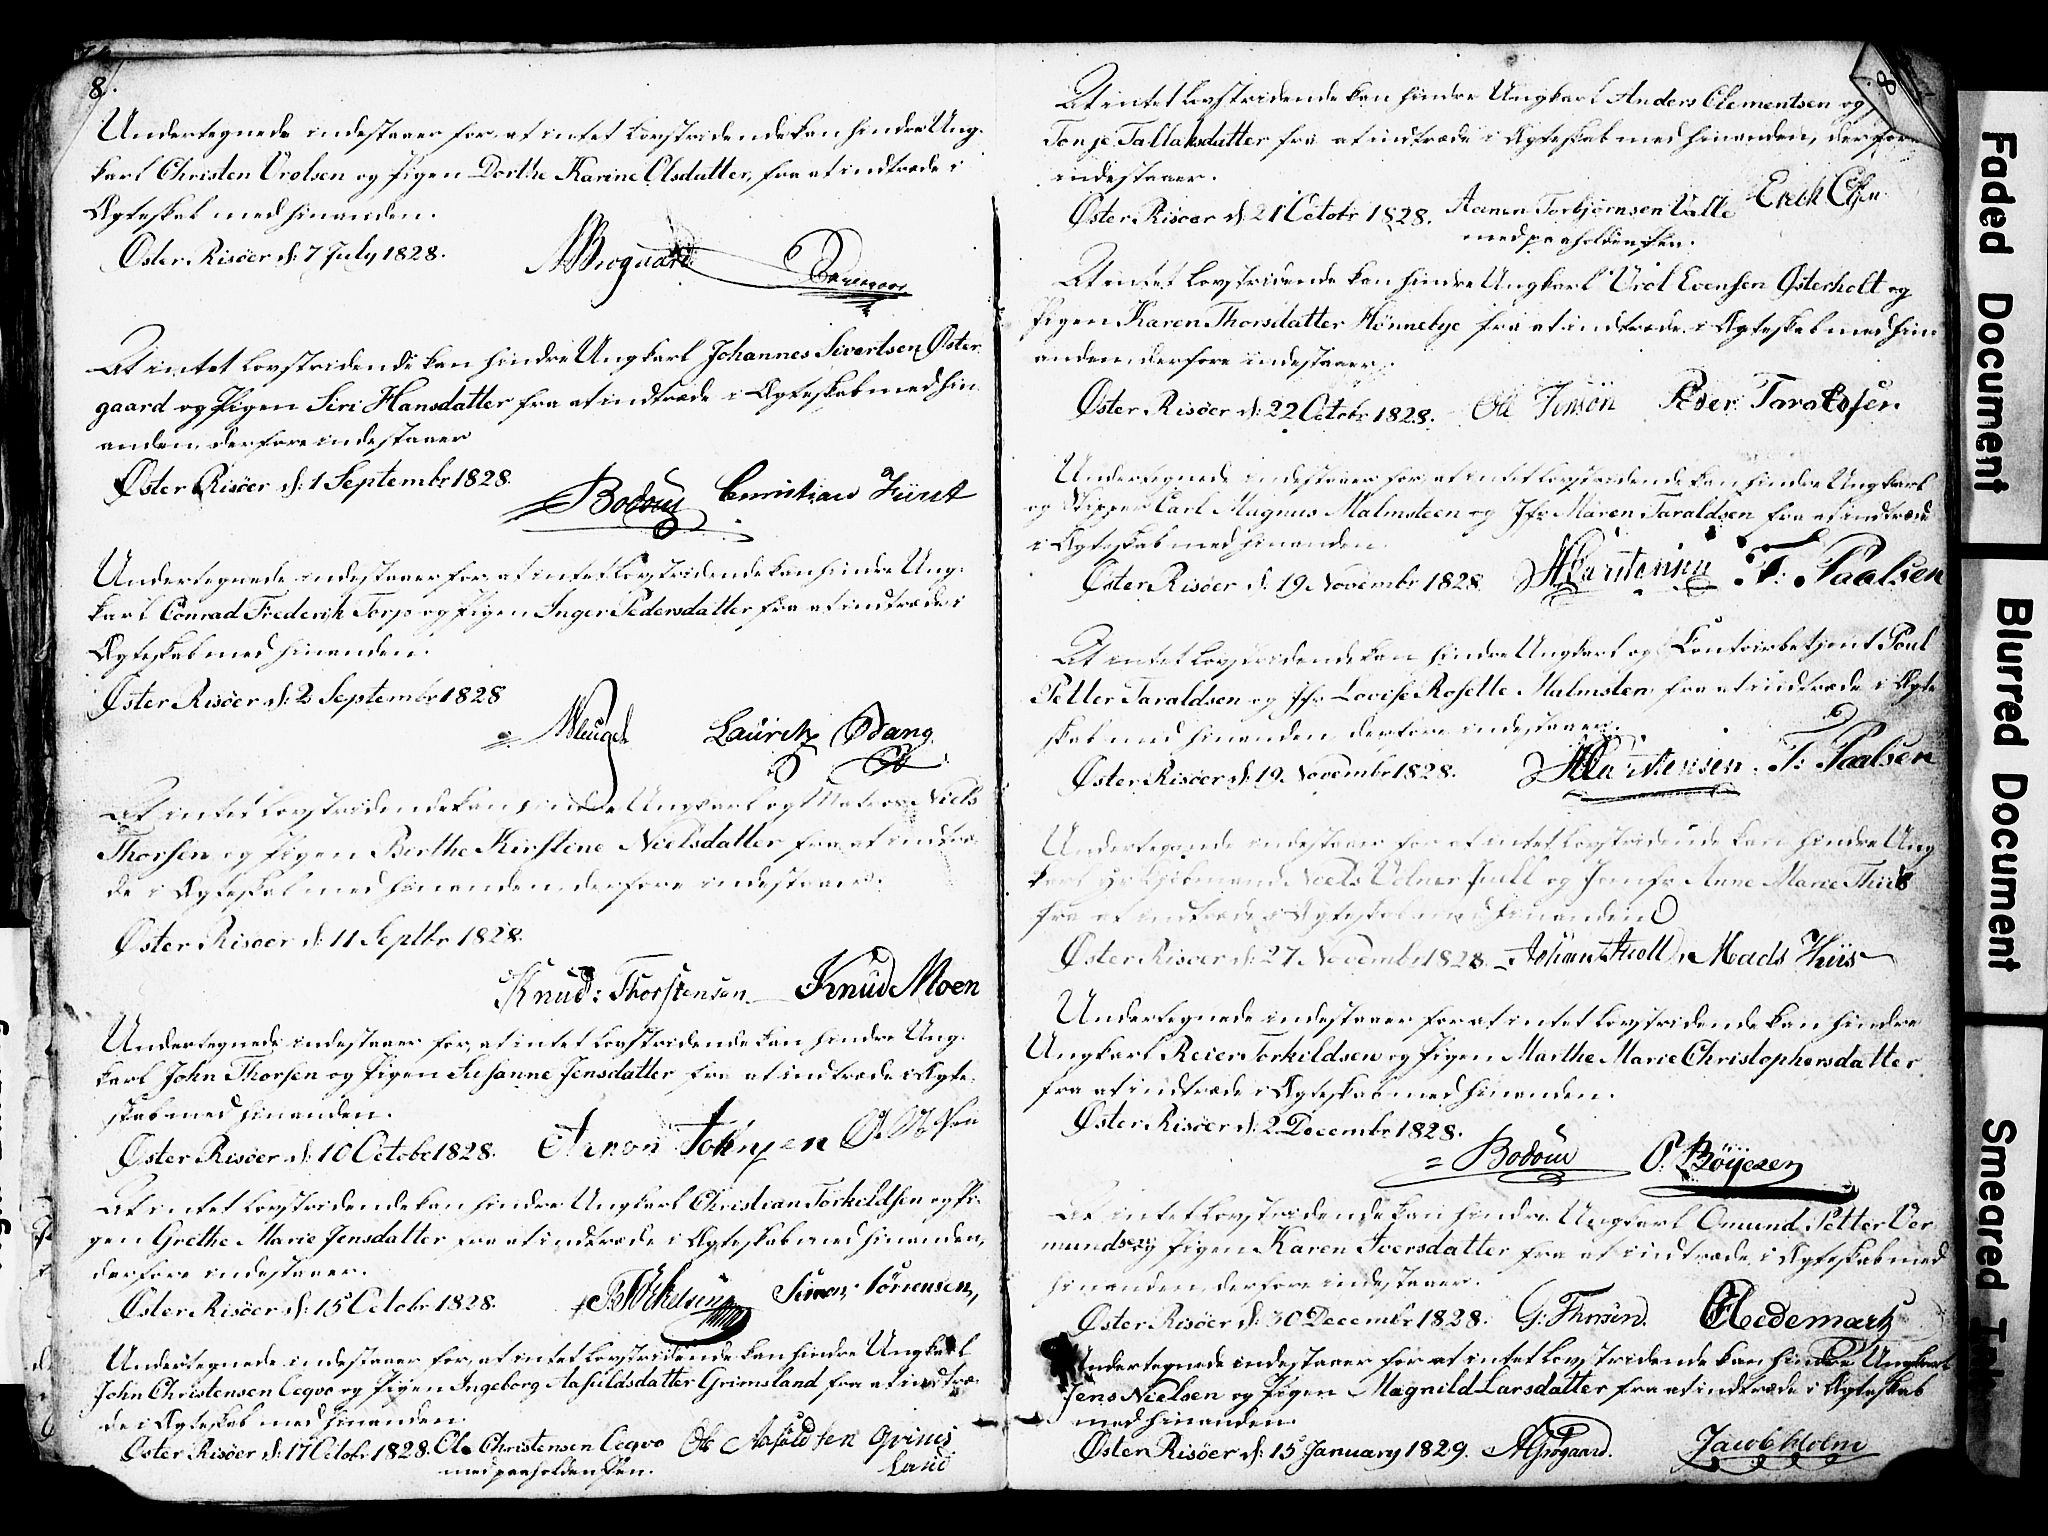 8.
Undertegnede indestaaer for, at intet lovstridende kan hindre Ung-
karl Christen Vrolsen og Pigen Dorthe Karine Olsdatter, fra at indtræde i
Ægteskab med hinanden.
Öster Risöer d: 7 July 1828.
At intet lovstridende kan hindre Ungkarl Johannes Sivertsen Öster
gaard og Pigen Siri Hansdatter fra at indtræde i Ægteskab med hin
anden, derfore indestaaer
Öster Risöer d: 1 Septembr 1828. Bodom Christian Fürst
Undertegnede indestaaer for, at intet lovstridende kan hindre Ung-
karl Conrad Frederik Torp og Pigen Inger Pedersdatter fra at indtræde i
Ægteskab med hinanden.
Öster Risöer d: 2 Septembr 1828
Lauritz Dang
At intet lovstridende kan hindre Ungkarl og Matros Niels
Thorsen og Pigen Berthe Kirstine Nielsdatter fra at indtræ-
de i Ægteskab med hinanden derfore indestaaer.
Öster Risöer d: 11 Septbr 1828.
Knud: Thorstensen Knud Moen
Undertegnede indestaaer for, at intet lovstridende kan hindre Ung-
karl John Thorsen og Pigen Susanne Jensdatter fra at indtræde i Ægte-
skab med hinanden.
Öster Risöer d: 10 Octobr 1828.
At intet lovstridende kan hindre Ungkarl Christian Torkildsen og Pi-
gen Grethe Marie Jensdatter fra at indtræde i Ægteskab med hinanden,
derfore indestaaer.
Öster Risöer d: 15 Octobr 1828. Simon Sörrensen,
Undertegnede indestaaer for, at intet lovstridende kan hindre Ungkarl
John Christensen Ocqvo og Pigen Ingeborg Aasuldsdatter Grimsland fra at indtræ-
de i Ægteskab med hinanden.
Öster Risöer d: 17 Octobr 1828. Ole Christensen Ocqvo Ole Aasuldsen Grims
med paaholden Pen. land
8
At intet lovstridende kan hindre Ungkarl Anders Clementsen og
Tonje Tallaksdatter fra at indtræde i Ægteskab med hinanden, derfore
indestaaer.
Öster Risöer d: 21 Octobr 1828. Aanen Torbjörnsen Valle Erich Olsen
med paaholden Pen.
At intet lovstridende kan hindre Ungkarl Vrol Evensen Österholt og
Pigen Karen Thorsdatter Hönnebye fra at indtræde i Ægteskab med hin
anden, derfore indestaaer.
Öster Risöer d: 22 Octobr 1828. Ole Peder Taraldsen.
Undertegnede indestaaer for, at intet lovstridende kan hindre Ungkarl
og Skipper Carl Magnus Malmsteen og Jfr Maren Taraldsen fra at indtræde
i Ægteskab med hinanden.
Öster Risöer d: 19 Novembr 1828. T. Paalsen
At intet lovstridende kan hindre Ungkarl og Contoirbetjent Poul
Petter Taraldsen og Jfr Lovise Rosette Malmsten fra at indtræde i Ægte
skab med hinanden derfore indestaaer.
Öster Risöer d: 19. Novembr 1828. T: Paalsen
Undertegnede indestaaer for at intet lovstridende kan hindre Ung
karl og Niels Volner Juell og Jomfr Anne Marie Thiis
fra at indtræde i Ægteskab med hinanden
Öster Risöer d: 27 Novembr 1828. Mads Thiis
Undertegnede indestaaer for at intet lovstridende kan hindre
Ungkarl Reier Torkildsen og Pigen Marthe Marie Christophersdatter
fra at indtræde i Ægteskab med hinanden.
Öster Risöer d: 2 Decembr 1828.
Bodom P. Böyesen
At intet lovstridende kan hindre Ungkarl Omund Petter Ver-
mundsen og Pigen Karen Iversdatter fra at indtræde i Ægteskab med
hinanden derfore indestaaer.
Öster Risöer d: 30 Decembr 1828. Hedemark
Undertegnede indestaaer for at intet lovstridende kan hindre Ungkarl
Jens Nielsen og Pigen Magnild Larsdatter fra at indtræde i Ægteskab
med hinanden.
Öster Risöer d: 15 January 1829. Jacob Holm
Faded Document
Blurred Document
Smeared